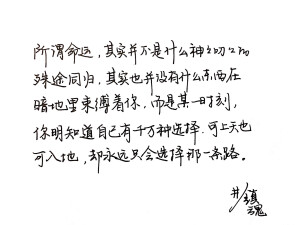 所谓命运，其实并不是什么神神叨叨的
殊途同归，其实也并没有什么东西在
暗地里束缚着你，而是某一时刻，
你明知道自己有千万种选择，可上天也
可入地，却永远只会选择那一条路。
#镇
魂